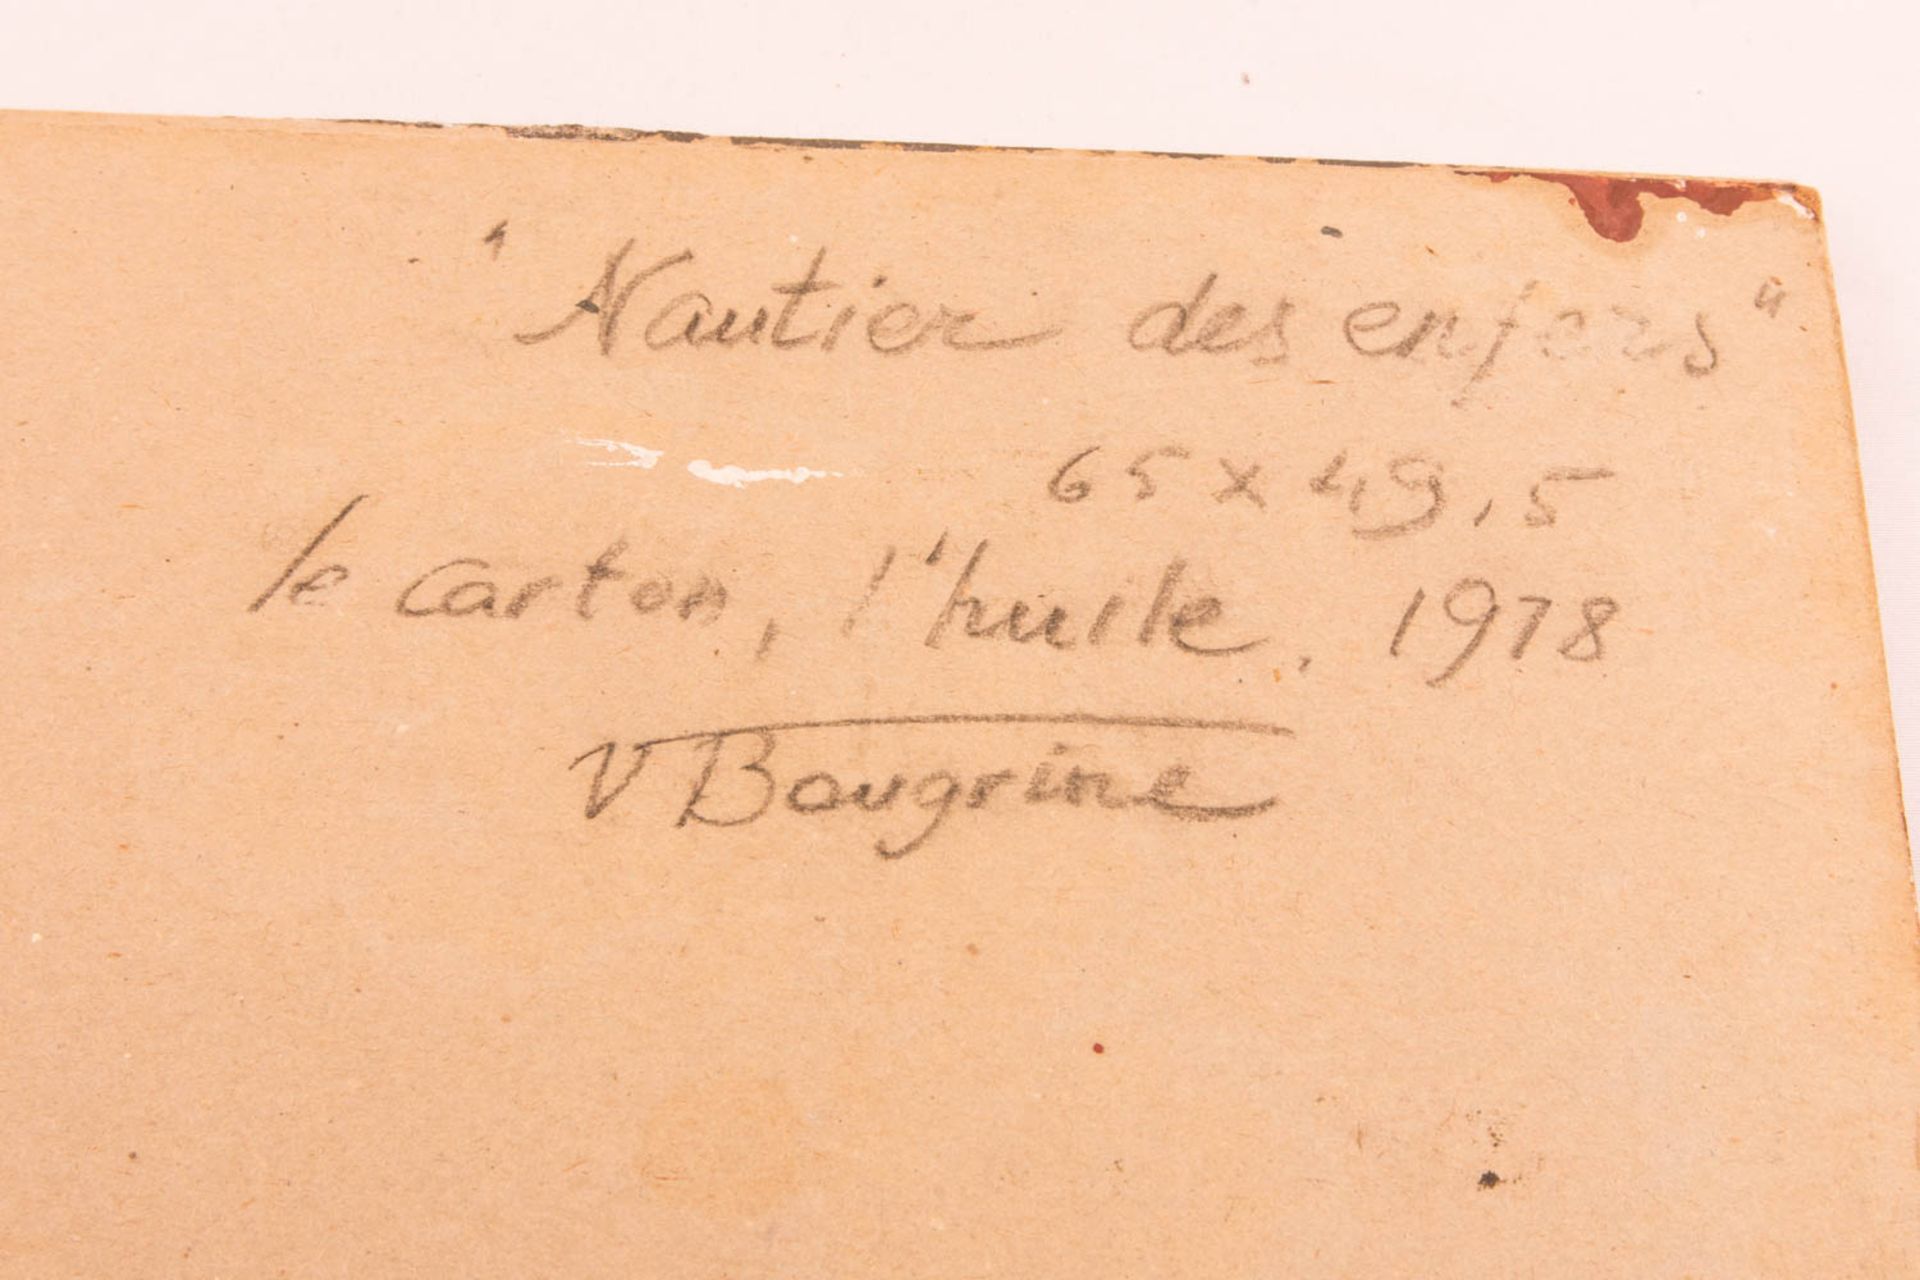 "Nautier des enfers"
65 x 49,5
le carton, l'huile, 1978
V Bougrine